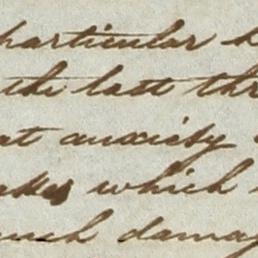 particular
the last
at anxiety
which
damag